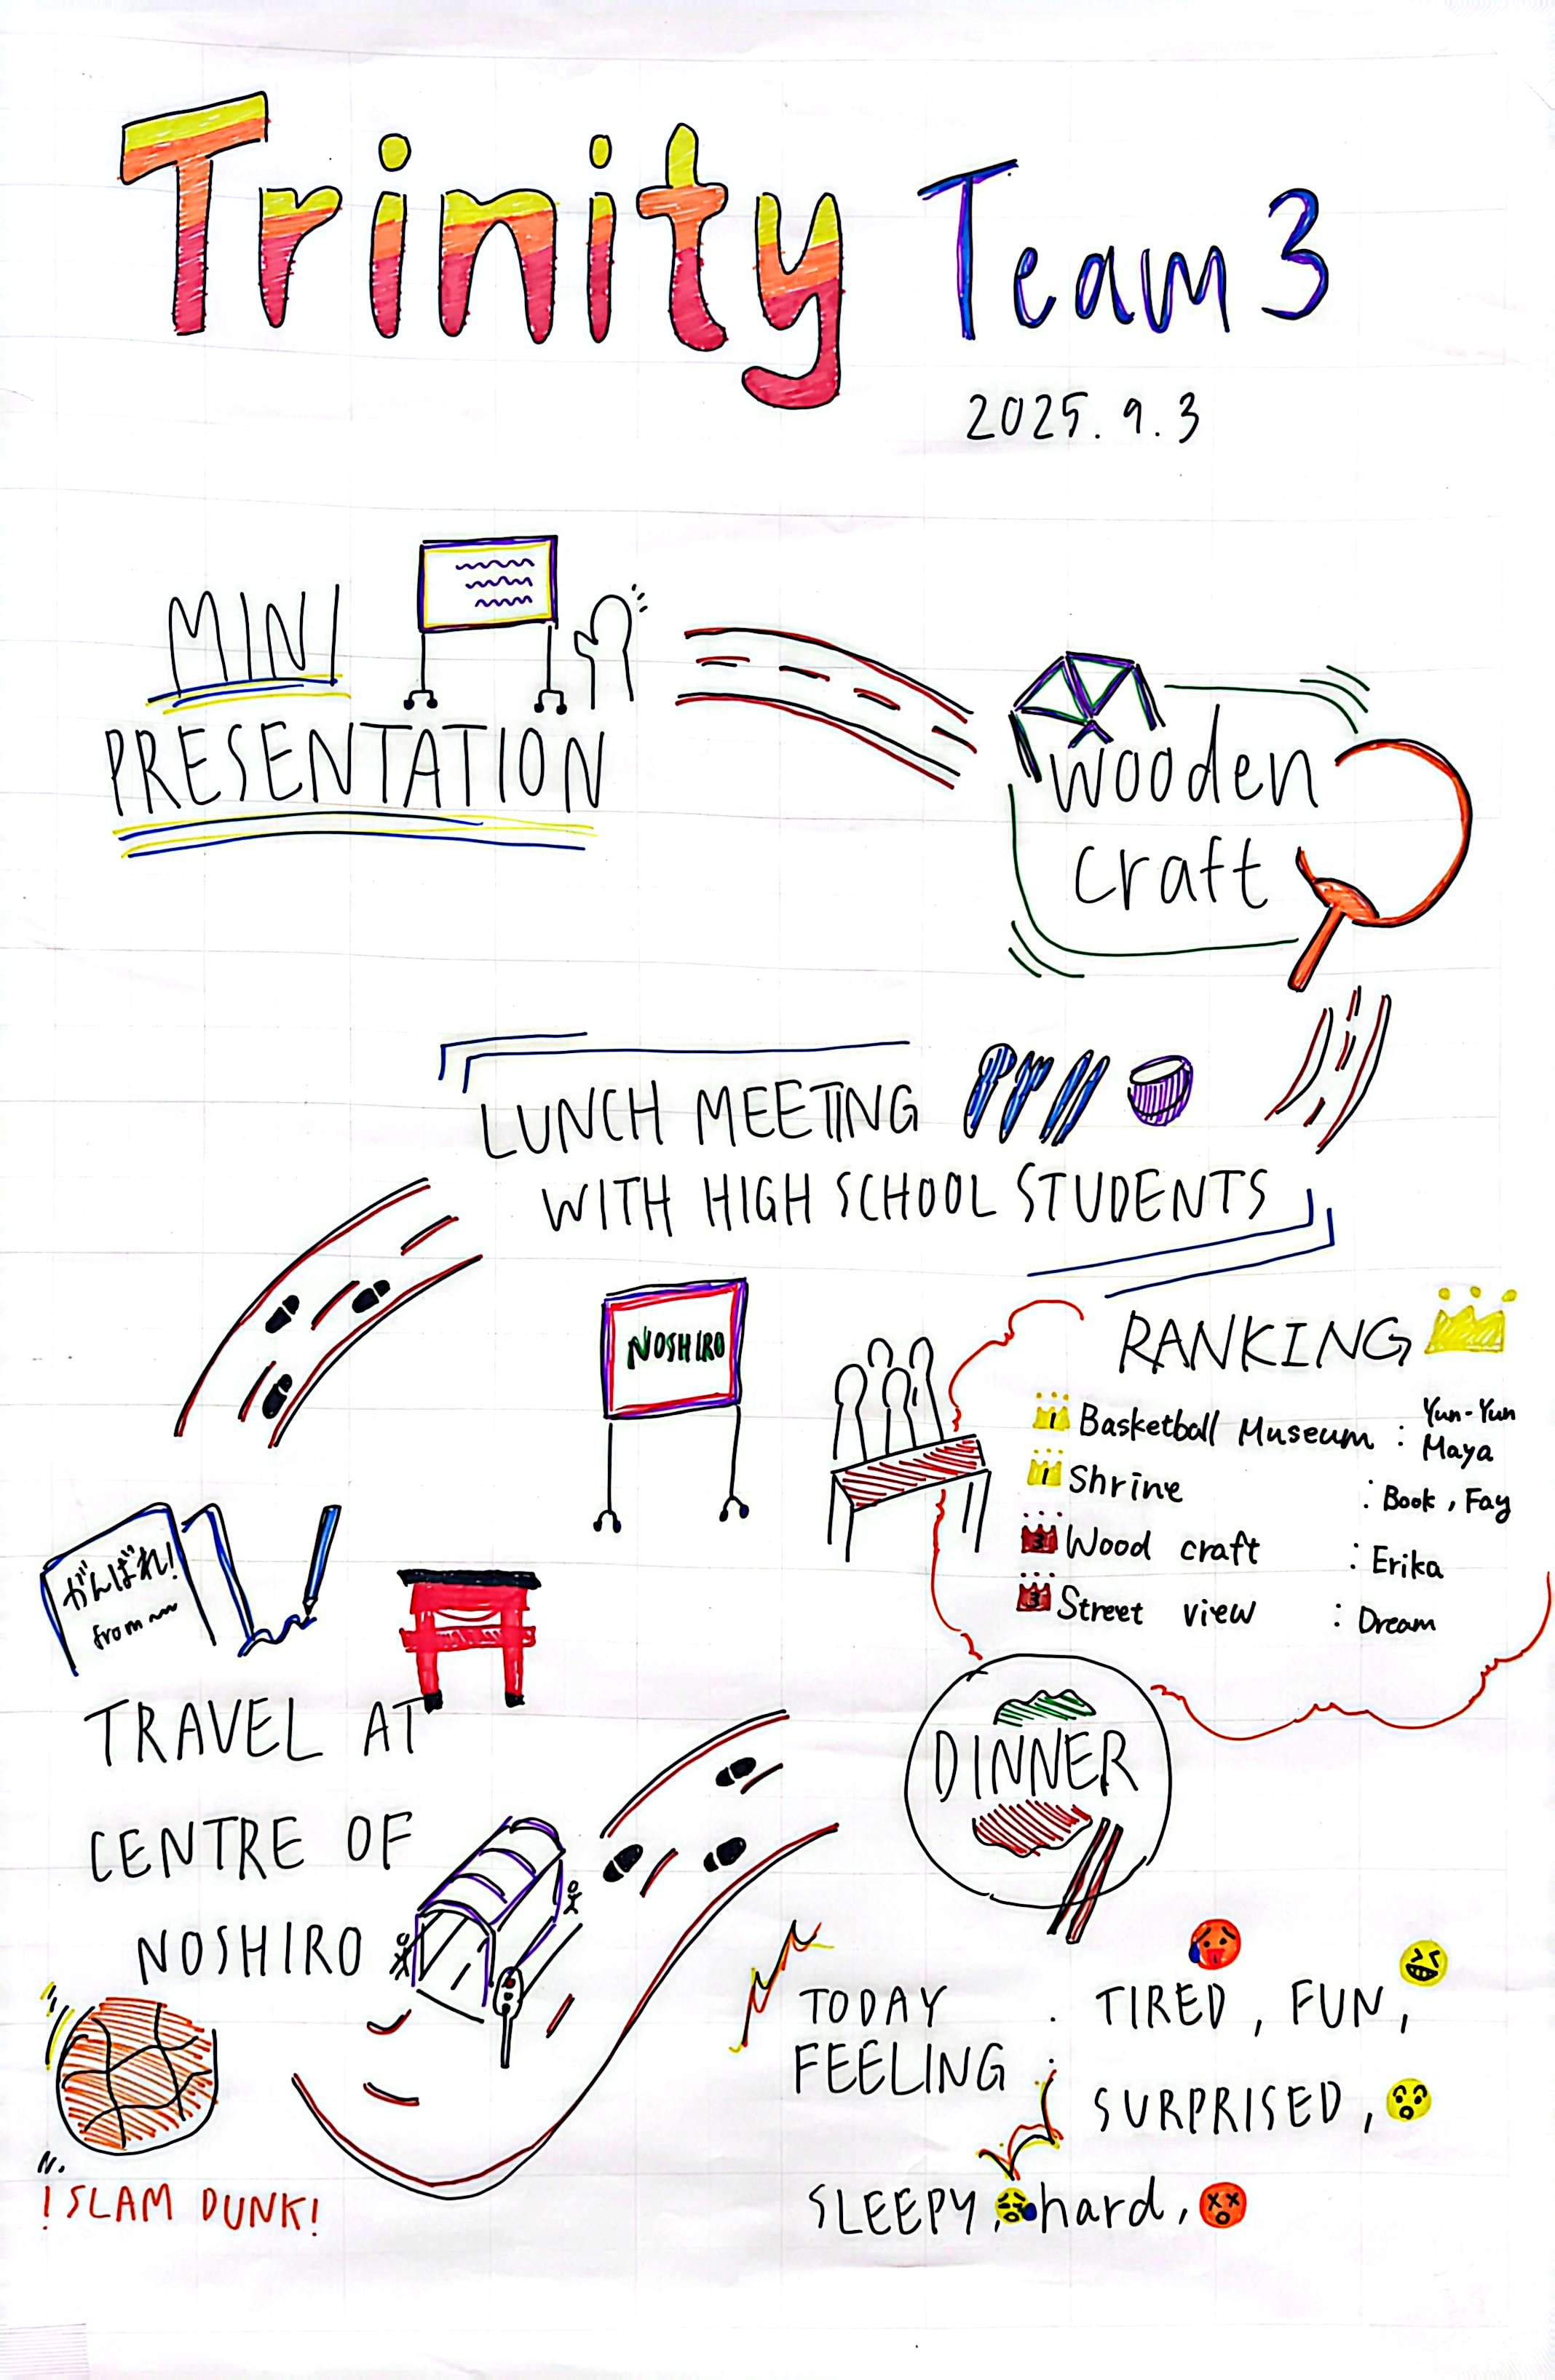 Trinity Team 3
2025. 9. 3
MINI
PRESENTATION
wooden
craft
LUNCH MEETING
WITH HIGH SCHOOL STUDENTS
NOSHIRO
RANKING
1 Basketball Museum : Yun-Yun
Maya
1 Shrine : Book, Fay
3 Wood craft : Erika
3 Street view : Dream
がんばれ!
from
TRAVEL AT
CENTRE OF
NOSHIRO
DINNER
! SLAM DUNK!
TODAY
FEELING : TIRED, FUN,
SURPRISED,
SLEEPY, hard,